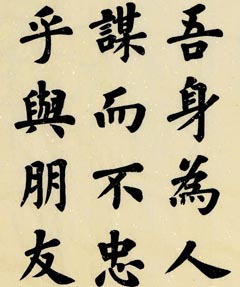 吾身為人
謀而不忠
乎與朋友